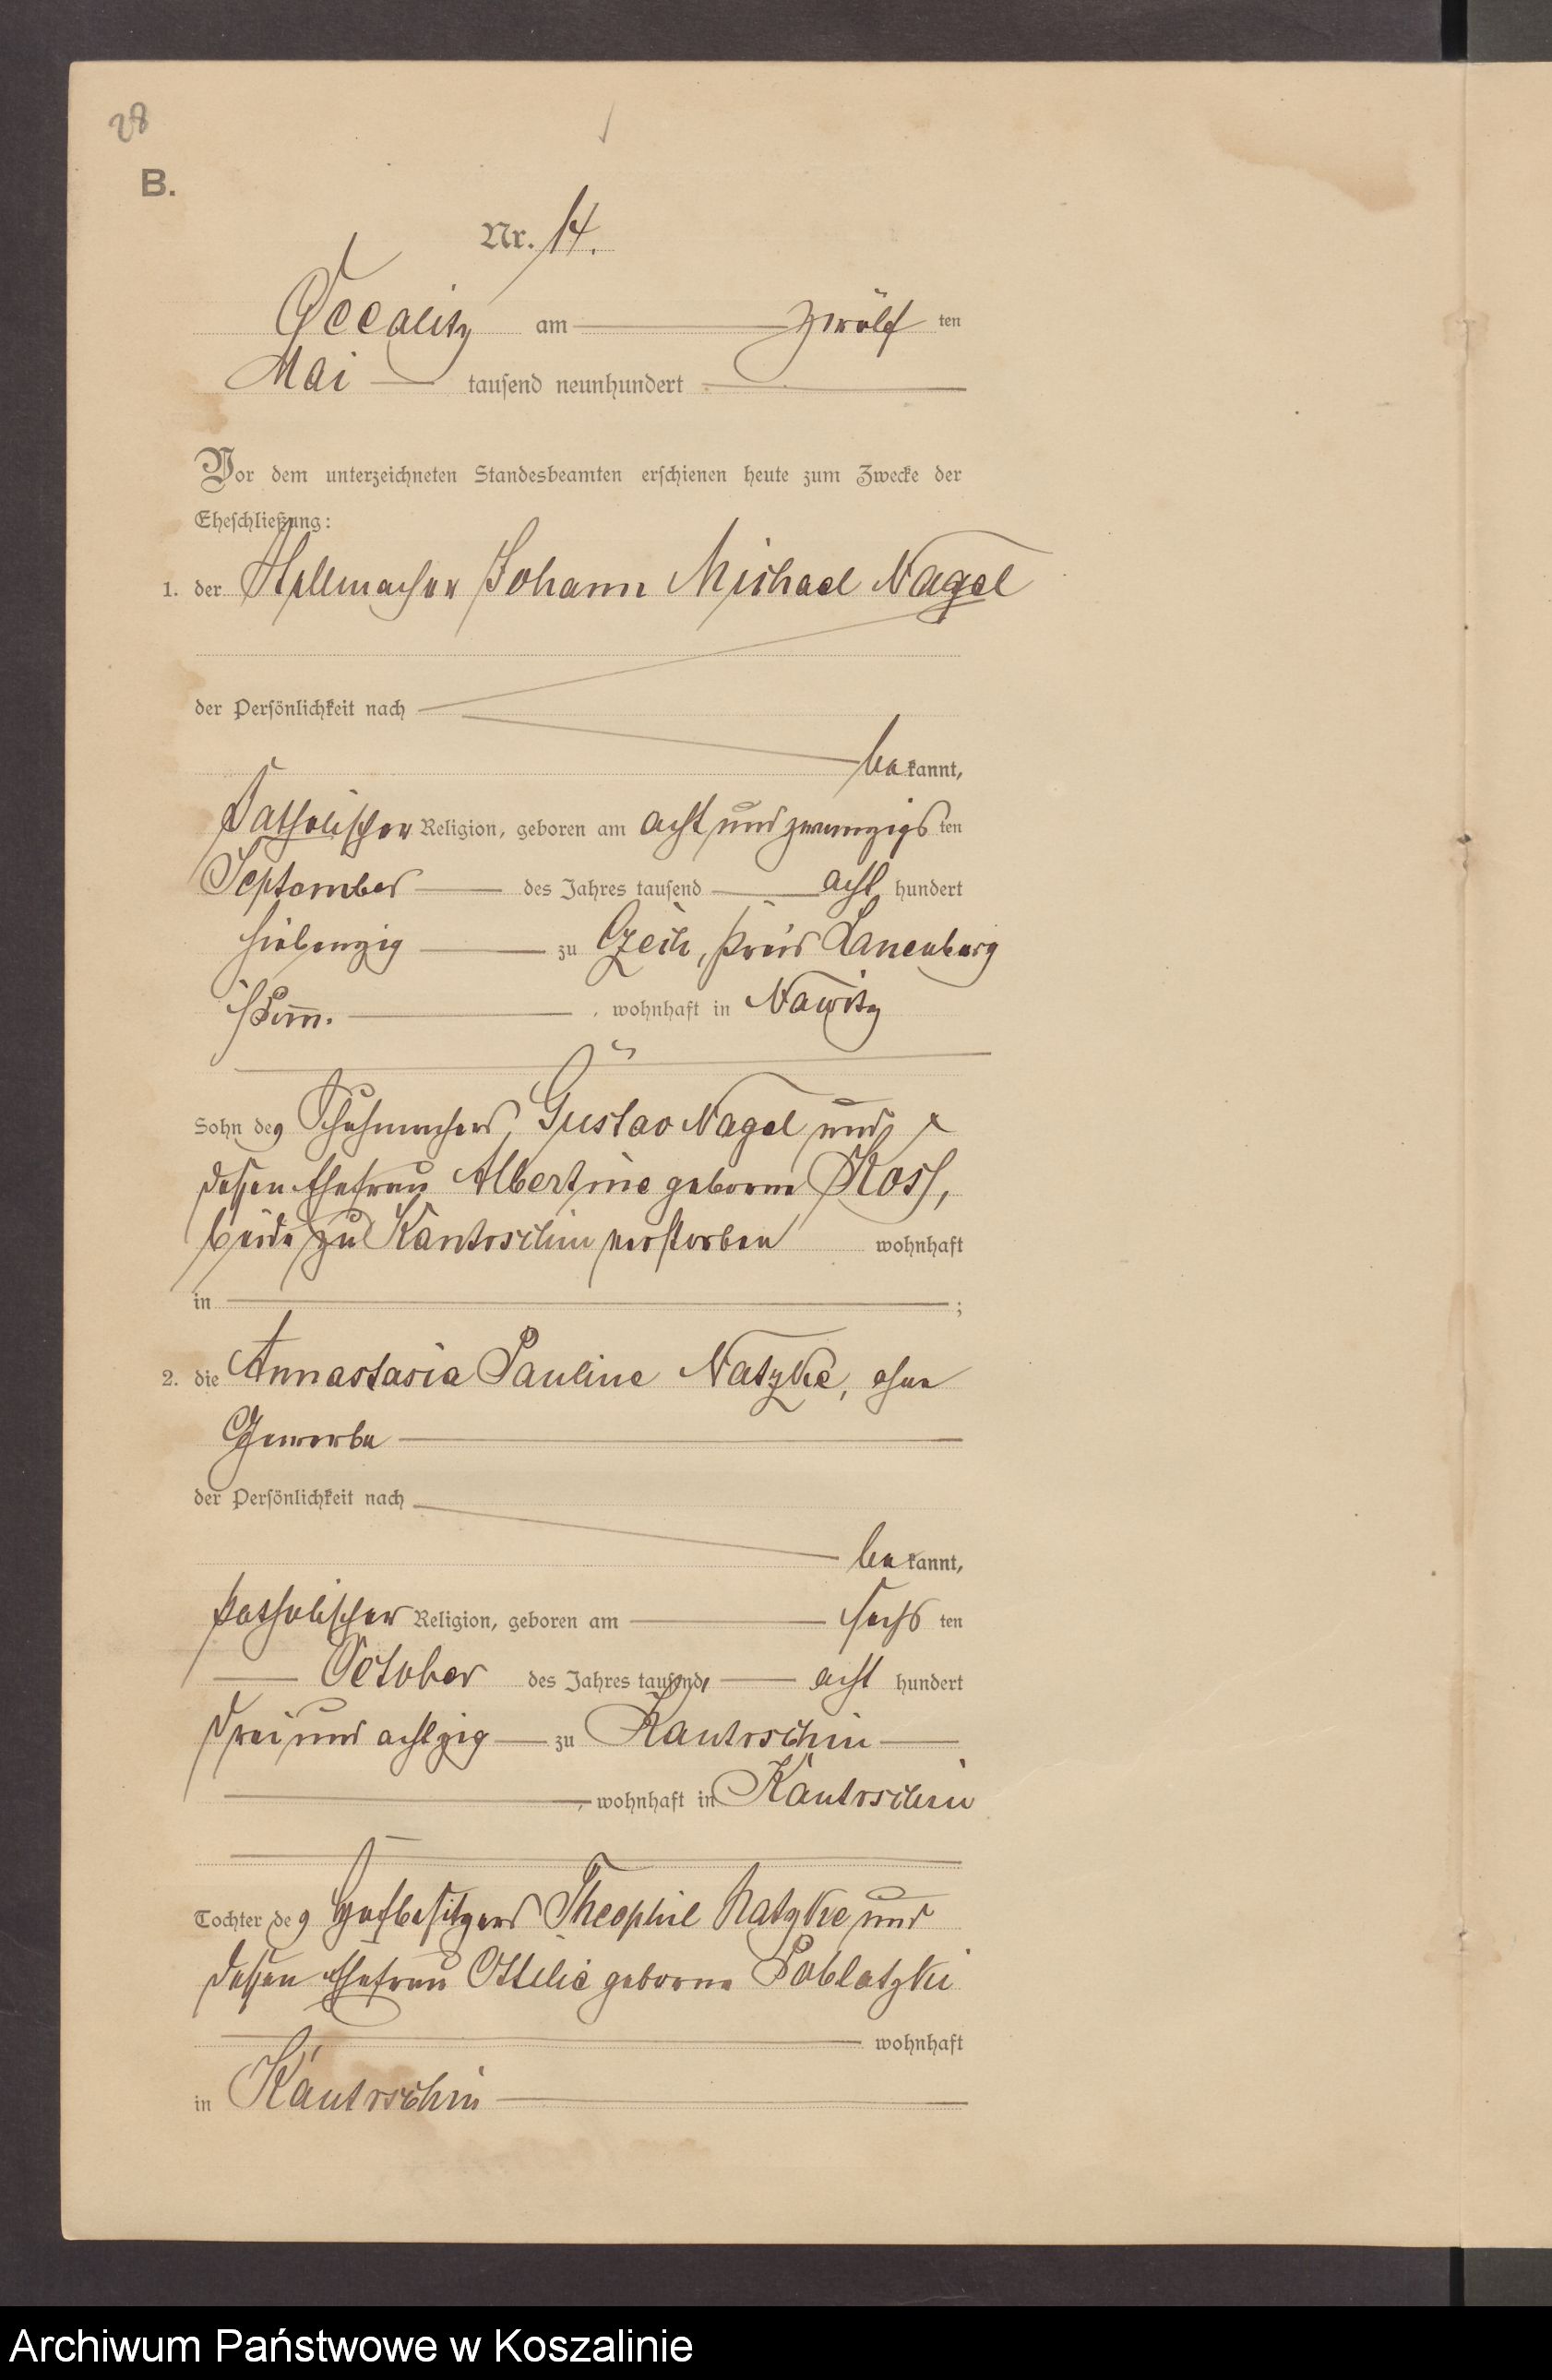 28
B.
Nr. 14.
Occalitz am zwölf ten
Mai tausend neunhundert
Vor dem unterzeichneten Standesbeamten erschienen heute zum Zwecke der
Eheschließung:
1. der Stellmacher Johann Michael Nagel
der Persönlichkeit nach
be kannt,
katholischer Religion, geboren am acht und zwanzigs ten
September des Jahres tausend acht hundert
siebenzig zu Czech, Kreis Lauenburg
i/Pom. , wohnhaft in Nawitz
Sohn des Schuhmachers Gustav Nagel und
dessen Ehefrau Albertine geborne Koss,
beide zu Kantrschin verstorben wohnhaft
in ;
2. die Annastasia Pauline Natzke, ohne
Gewerbe
der Persönlichkeit nach
be kannt,
katholischer Religion, geboren am sechs ten
October des Jahres tausend acht hundert
drei und achtzig zu Kantrschin
, wohnhaft in Kantrschin
Tochter des Hofbesitzers Theophil Natzke und
dessen Ehefrau Ottilie geborne Pablotzki
wohnhaft
in Kantrschin
Archiwum Państwowe w Koszalinie